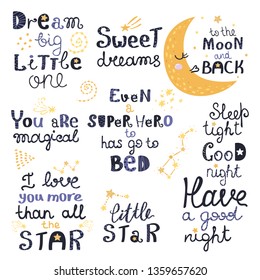 Dream
big
Little
one
Sweet
dreams
to the
Moon
and
BACK
You are
magical
Even
a
SUPER HERO
to
has go to
BED
Sleep
tight
Good
night
I love
you more
than all
the
STAR
little
Star
Have
a good
night
shutterstock.com · 1359657620